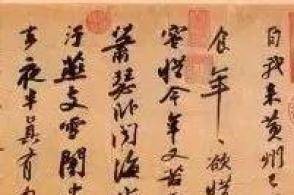 自我來黃州已
食年〻欲惜
容惜今年又苦
蕭瑟臥聞海
汙燕支雪闇中
去夜半真有